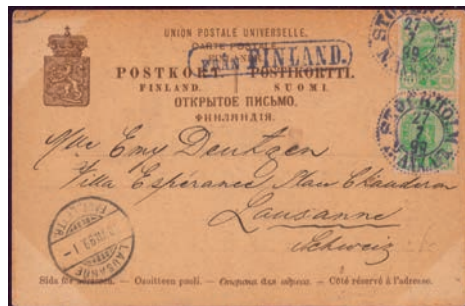 UNION POSTALE UNIVERSELLE.
CARTE POSTALE
FRÅN FINLAND.
POSTKORT POSTIKORTTI.
FINLAND. SUOMI.
ОТКРЫТОЕ ПИСЬМО.
ФИНЛЯНДІЯ.
STOCKHOLM
27
7
99
STOCKHOLM
27
7
99
Emy Deutzen
Villa Espérance
Lausanne
Schweiz
LAUSANNE
Sida för adressen. — Osoitteen puoli. — Сторона для адреса. — Côté réservé à l'adresse.